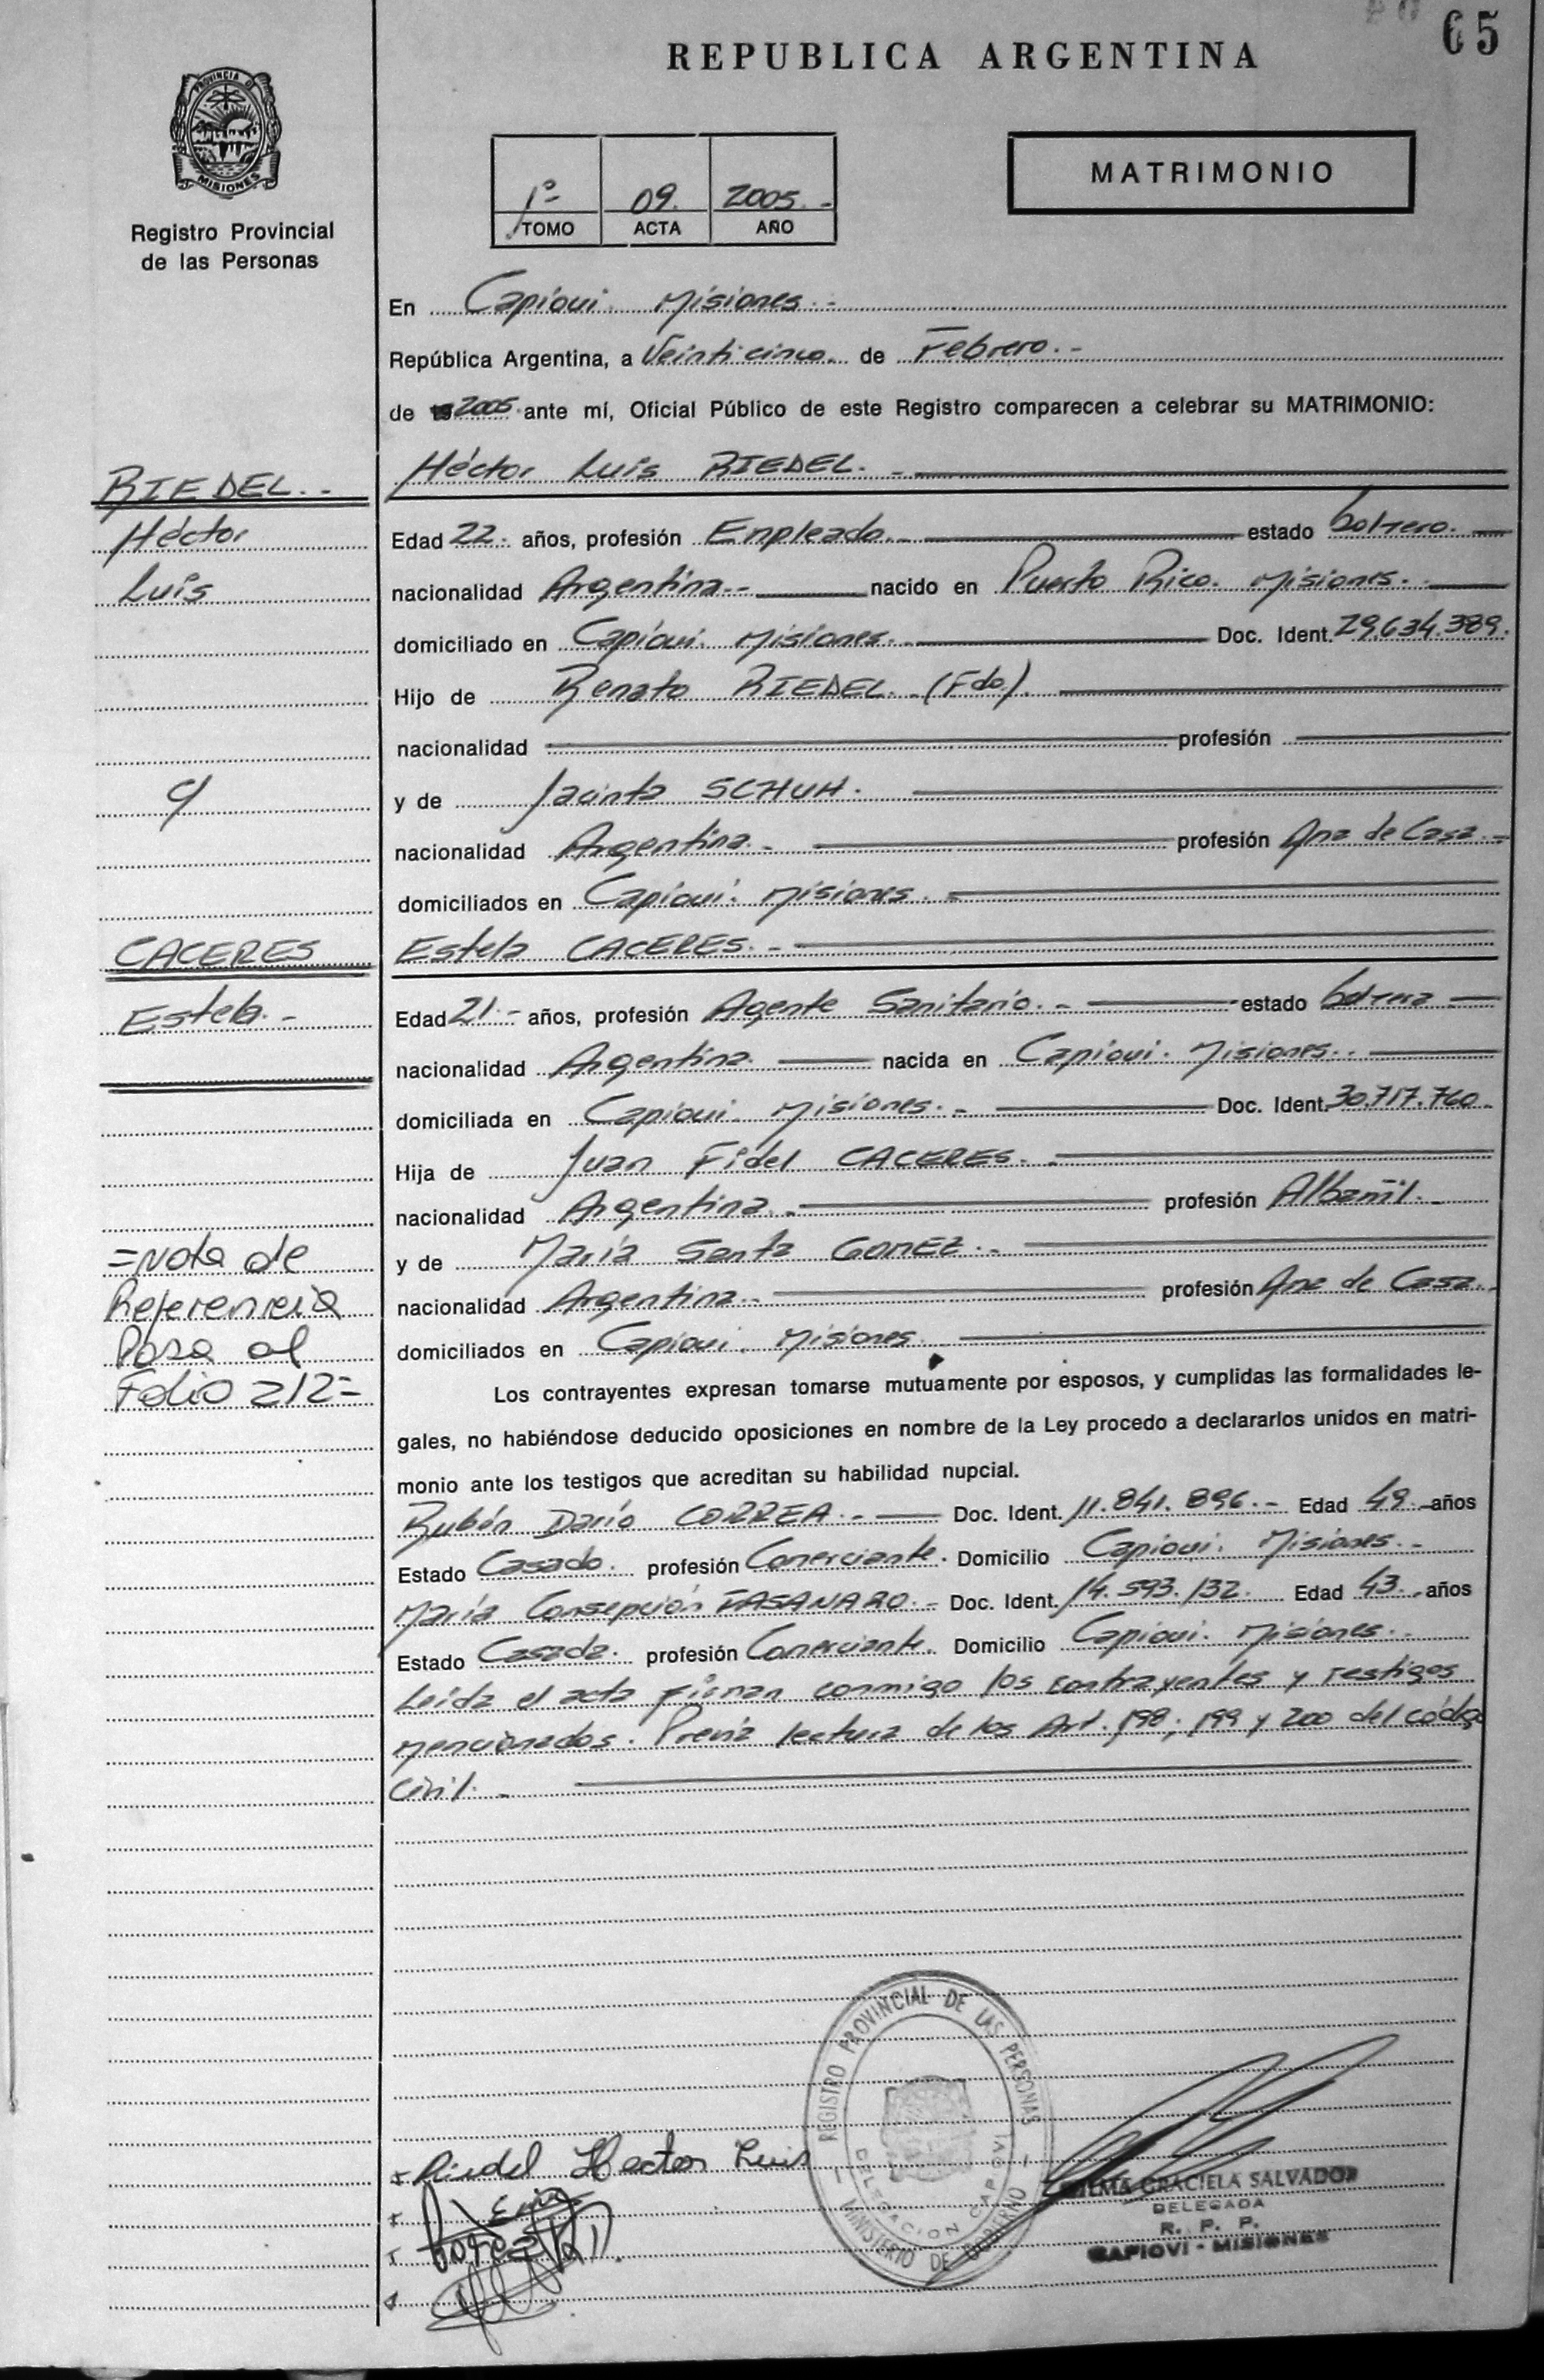 65
REPUBLICA ARGENTINA
PROVINCIA D
MISIONES
Registro Provincial
de las Personas
1º 09. 2005.-
TOMO ACTA AÑO
MATRIMONIO
En Capioui. Misiones.-
República Argentina, a Veinticinco de Febrero.-
de 2005 ante mí, Oficial Público de este Registro comparecen a celebrar su MATRIMONIO:
RIEDEL.-
Héctor Luis RIEDEL.-
Héctor
Edad 22. años, profesión Empleado.- estado Soltero.
Luis
nacionalidad Argentina.- nacido en Puerto Rico. Misiones.
domiciliado en Capioui. Misiones.- Doc. Ident. 29.634.389.
Hijo de Renato RIEDEL. (Fdo).
nacionalidad profesión
c/
y de Jacinta SCHUH.
nacionalidad Argentina.- profesión Ama de Casa.-
domiciliados en Capioui. Misiones.-
CACERES
Estela CACERES.-
Estela.-
Edad 21.- años, profesión Agente Sanitario.- estado Soltera
nacionalidad Argentina. nacida en Capioui. Misiones..
domiciliada en Capioui. Misiones.- Doc. Ident. 30.717.760
Hija de Juan Fidel CACERES.-
nacionalidad Argentina.- profesión Albañil.-
=Nota de
y de María Santa GOMEZ.-
Referencia
nacionalidad Argentina.- profesión Ama de Casa.
Pasa al
domiciliados en Capioui. Misiones.
Folio 212=
Los contrayentes expresan tomarse mutuamente por esposos, y cumplidas las formalidades le-
gales, no habiéndose deducido oposiciones en nombre de la Ley procedo a declararlos unidos en matri-
monio ante los testigos que acreditan su habilidad nupcial.
Rubén Darío CORREA.- Doc. Ident. 11.841.896.- Edad 49.- años
Estado Casado. profesión Comerciante. Domicilio Capioui. Misiones.-
María Consepción FASANARO.- Doc. Ident. 14.593.132. Edad 43. años
Estado Casada. profesión Comerciante. Domicilio Capioui. Misiones.-
Leida el acta firman conmigo los contrayentes y testigos
mencionados. Previa lectura de los Art. 198, 199 y 200 del código
Civil.-
REGISTRO PROVINCIAL DE LAS PERSONAS
DELEGACION CAPIOVI
MINISTERIO DE GOBIERNO
Riedel Hector Luis
GRACIELA SALVADOR
DELEGADA
R. P. P.
CAPIOVI - MISIONES